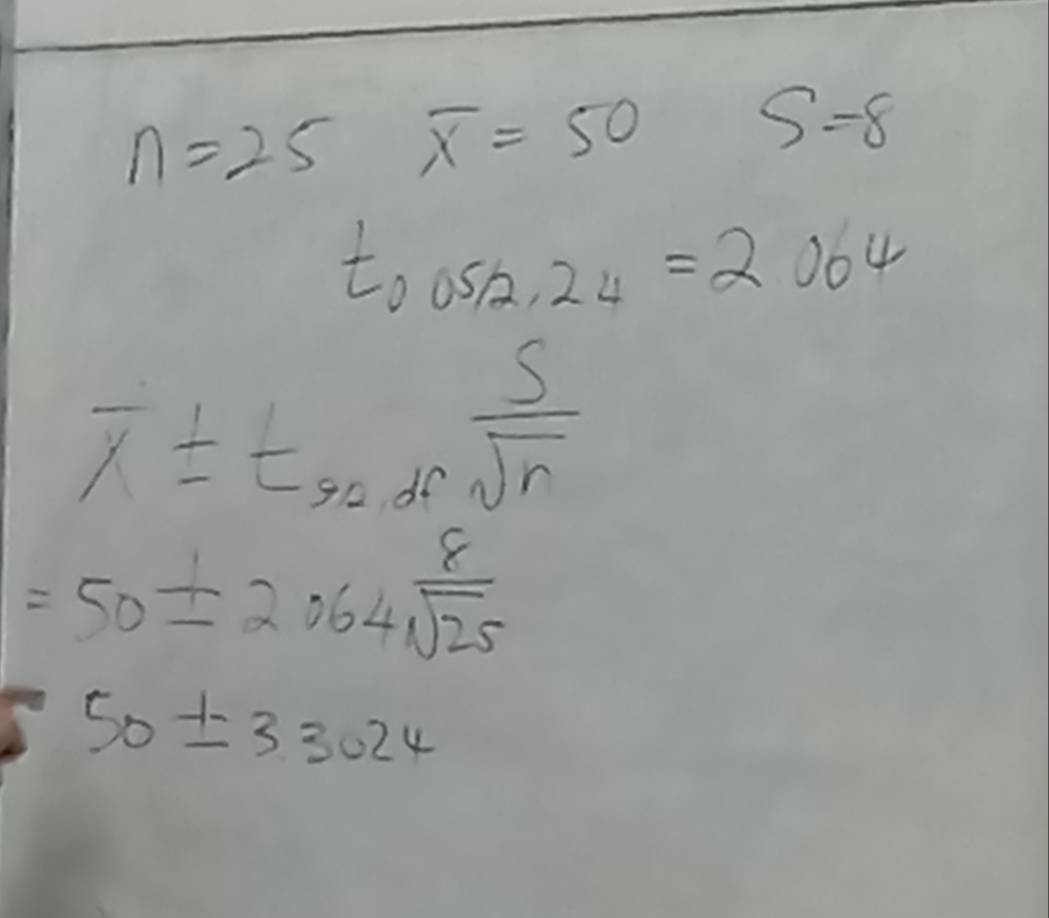 n=25 x̄ = 50 S=8
t0.05/2,24 = 2.064
x̄ ± t df S/√n
= 50 ± 2.064 8/√25
= 50 ± 3.3024